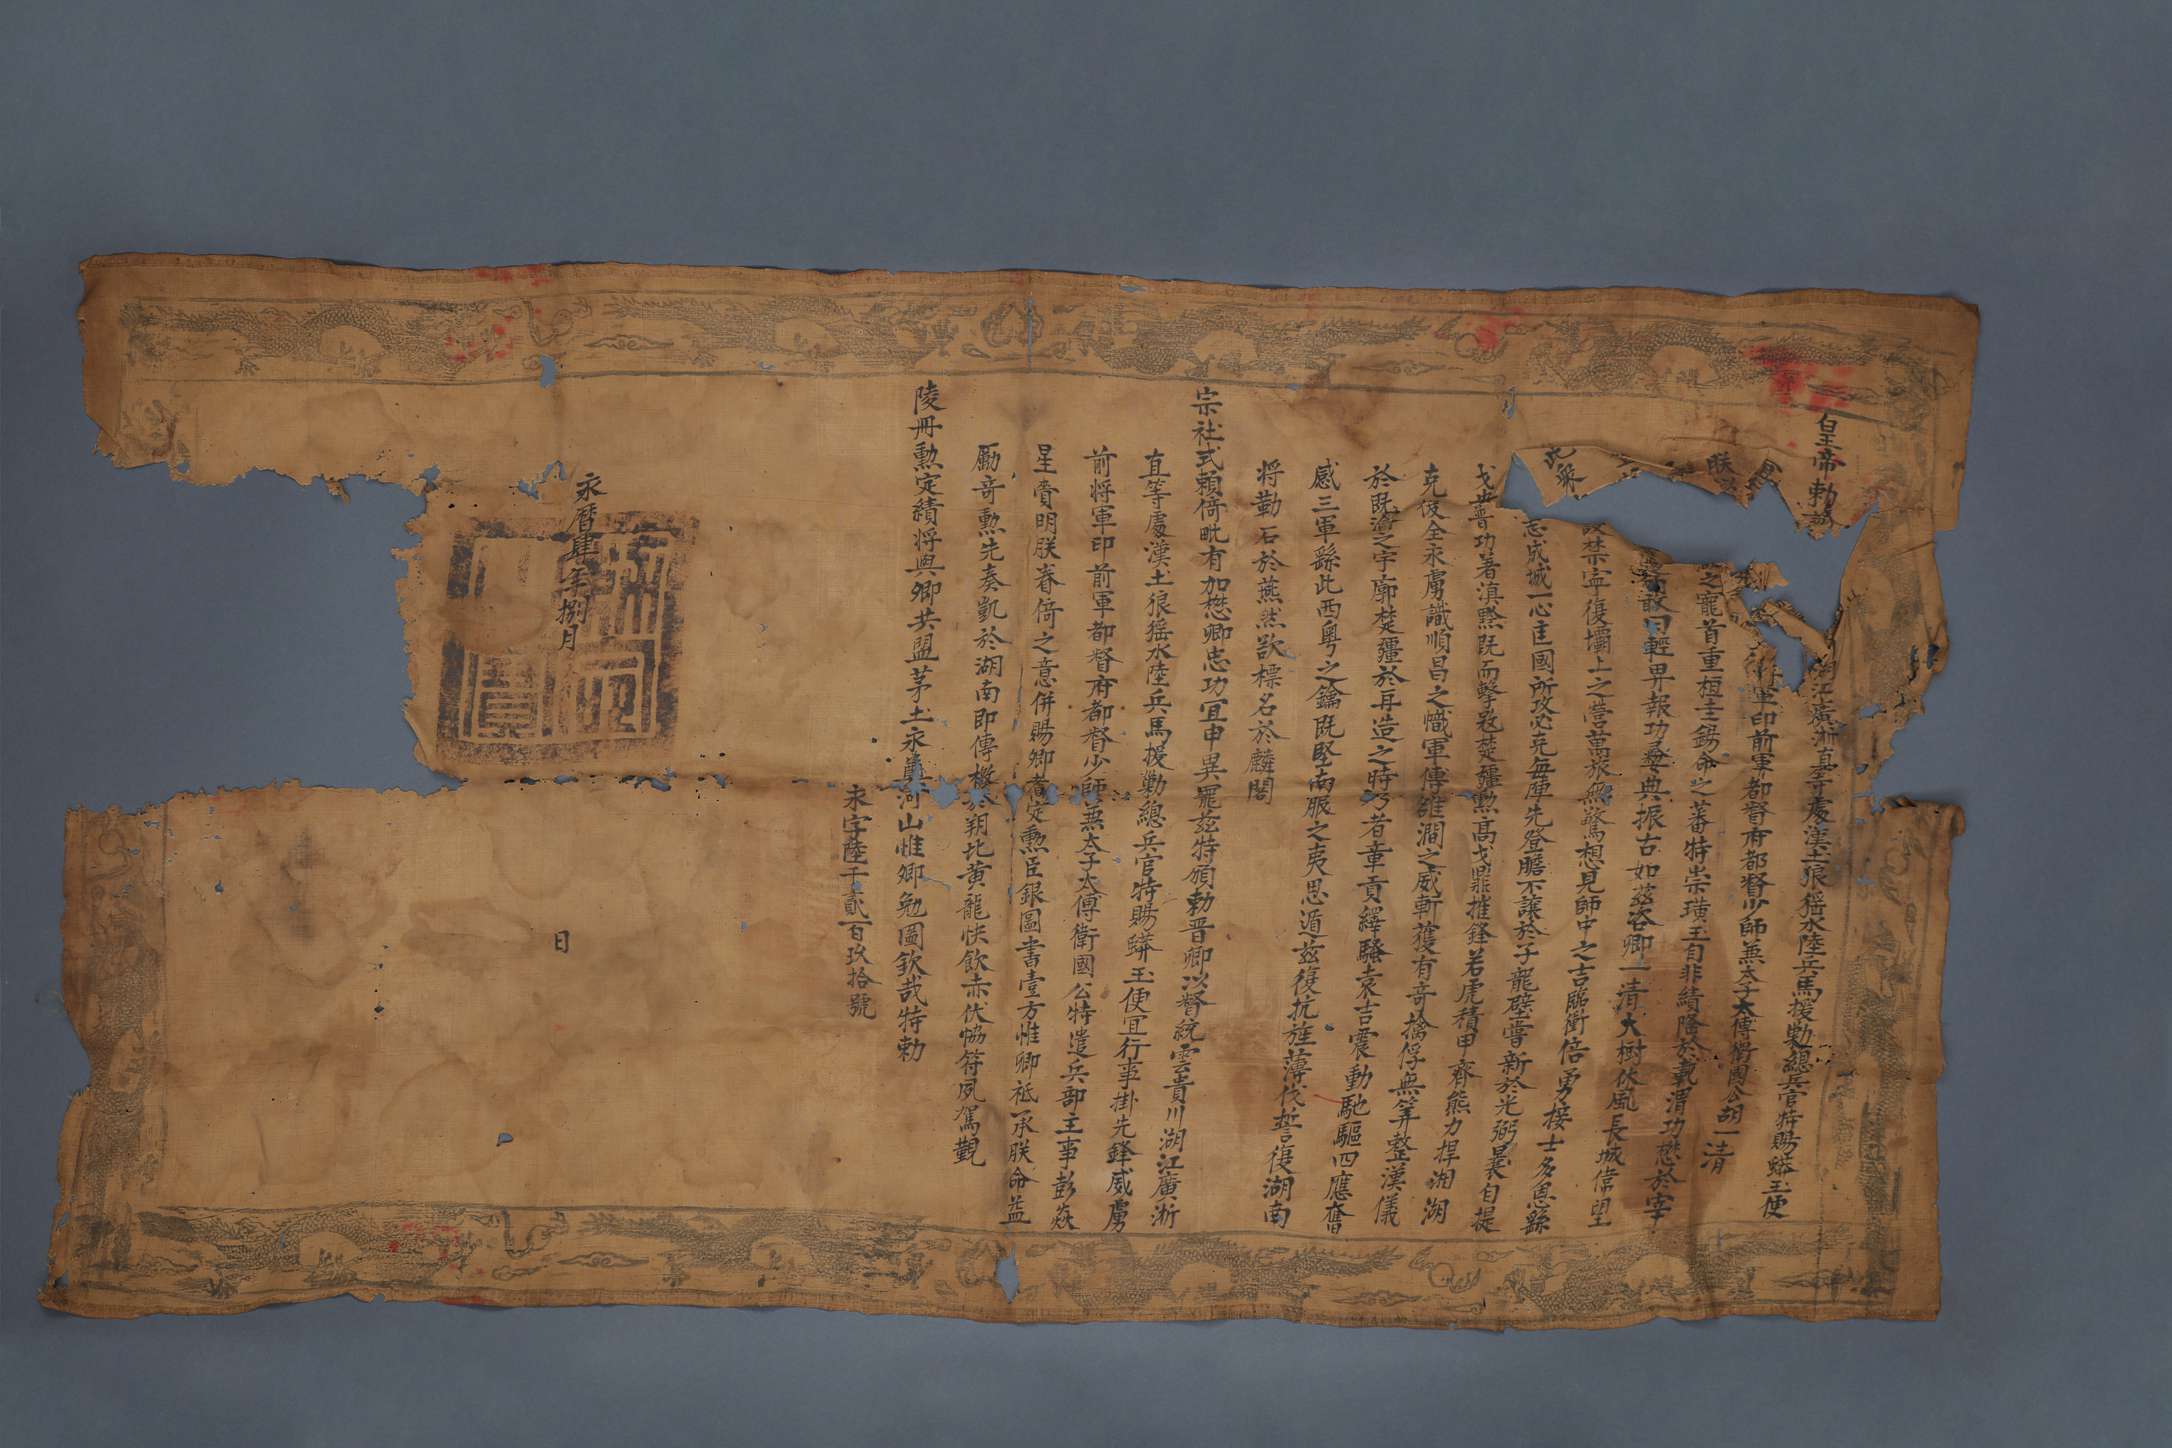 皇帝勅
湖江廣浙直等處漢土狼猺水陸兵馬援勦總兵官特賜蟒玉便
將軍印前軍都督府都督少師兼太子太傅衛國公胡一清
朕
之寵首重桓圭錫命之蕃特崇璜玉自非績隆於載渭功懋於宰
敢曰輕畀報功彝典振古如茲咨卿一清大樹休風長城偉望
禁寧復壩上之營萬旅無驚想見師中之吉臨衝倍勇接士多恩繇
此衆志成城一心匡國所攻必克每陣先登膽不讓於子龍壁嘗新於光弼曩自提
戈普功著滇黔既而擊楚疆勲高戈鼎摧鋒若虎積甲齊熊力捍湘湖
克復全永虜識順昌之幟軍傳雒澗之威斬獲有奇擒俘無筭整漢儀
於既淪之宇廓楚疆於再造之時乃者章貢繹騷袁吉震動馳驅四應奮
感三軍繇此西粤之鑰既堅南服之夷思遁茲復抗旌薄伐誓復湖南
將勒石於燕然欲標名於麟閣
宗社式賴倚毗有加懋卿忠功宜申異寵茲特頒勅晋卿以督統雲貴川湖江廣浙
直等處漢土狼猺水陸兵馬援勦總兵官特賜蟒玉便宜行事掛先鋒威虜
前將軍印前軍都督府都督少師兼太子太傅衛國公特遣兵部主事彭焱
星賫明朕眷倚之意併賜卿者定勲臣銀圖書壹方惟卿祗承朕命益
勵奇勲先奏凱於湖南即傳檄於朔北黃龍快飲赤伏恊符夙駕觀
陵冊勲定績將與卿共盟茅土永奠河山惟卿勉圖欽哉特勅
未字陸千貳百玖拾號
永曆肆年捌月
日